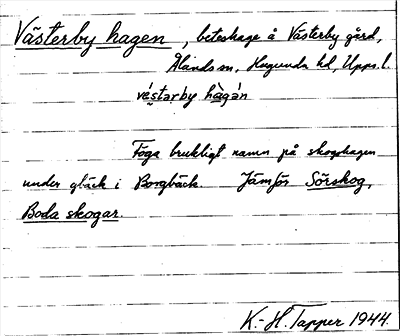 Västerby hagen, beteshage å Västerby gård,
Ålands sn, Hagunda hd, Upps. l.
vé̀stərby hàgán
Föga brukligt namn på skogshagen
under gläck i Borgbäck. Jämför Sörskog,
Boda skogar.
K.-H. Tapper 1944.